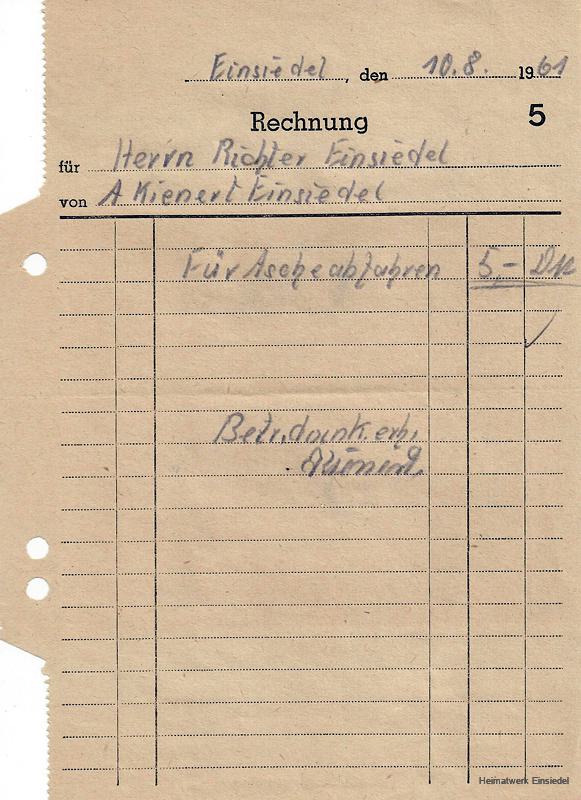 Einsiedel, den 10.8. 1961
Rechnung 5
für Herrn Richter Einsiedel
von A Kienert Einsiedel
Für Ascheabfahren 5,- DM
Betr. dank. erh.
Kienert
Heimatwerk Einsiedel